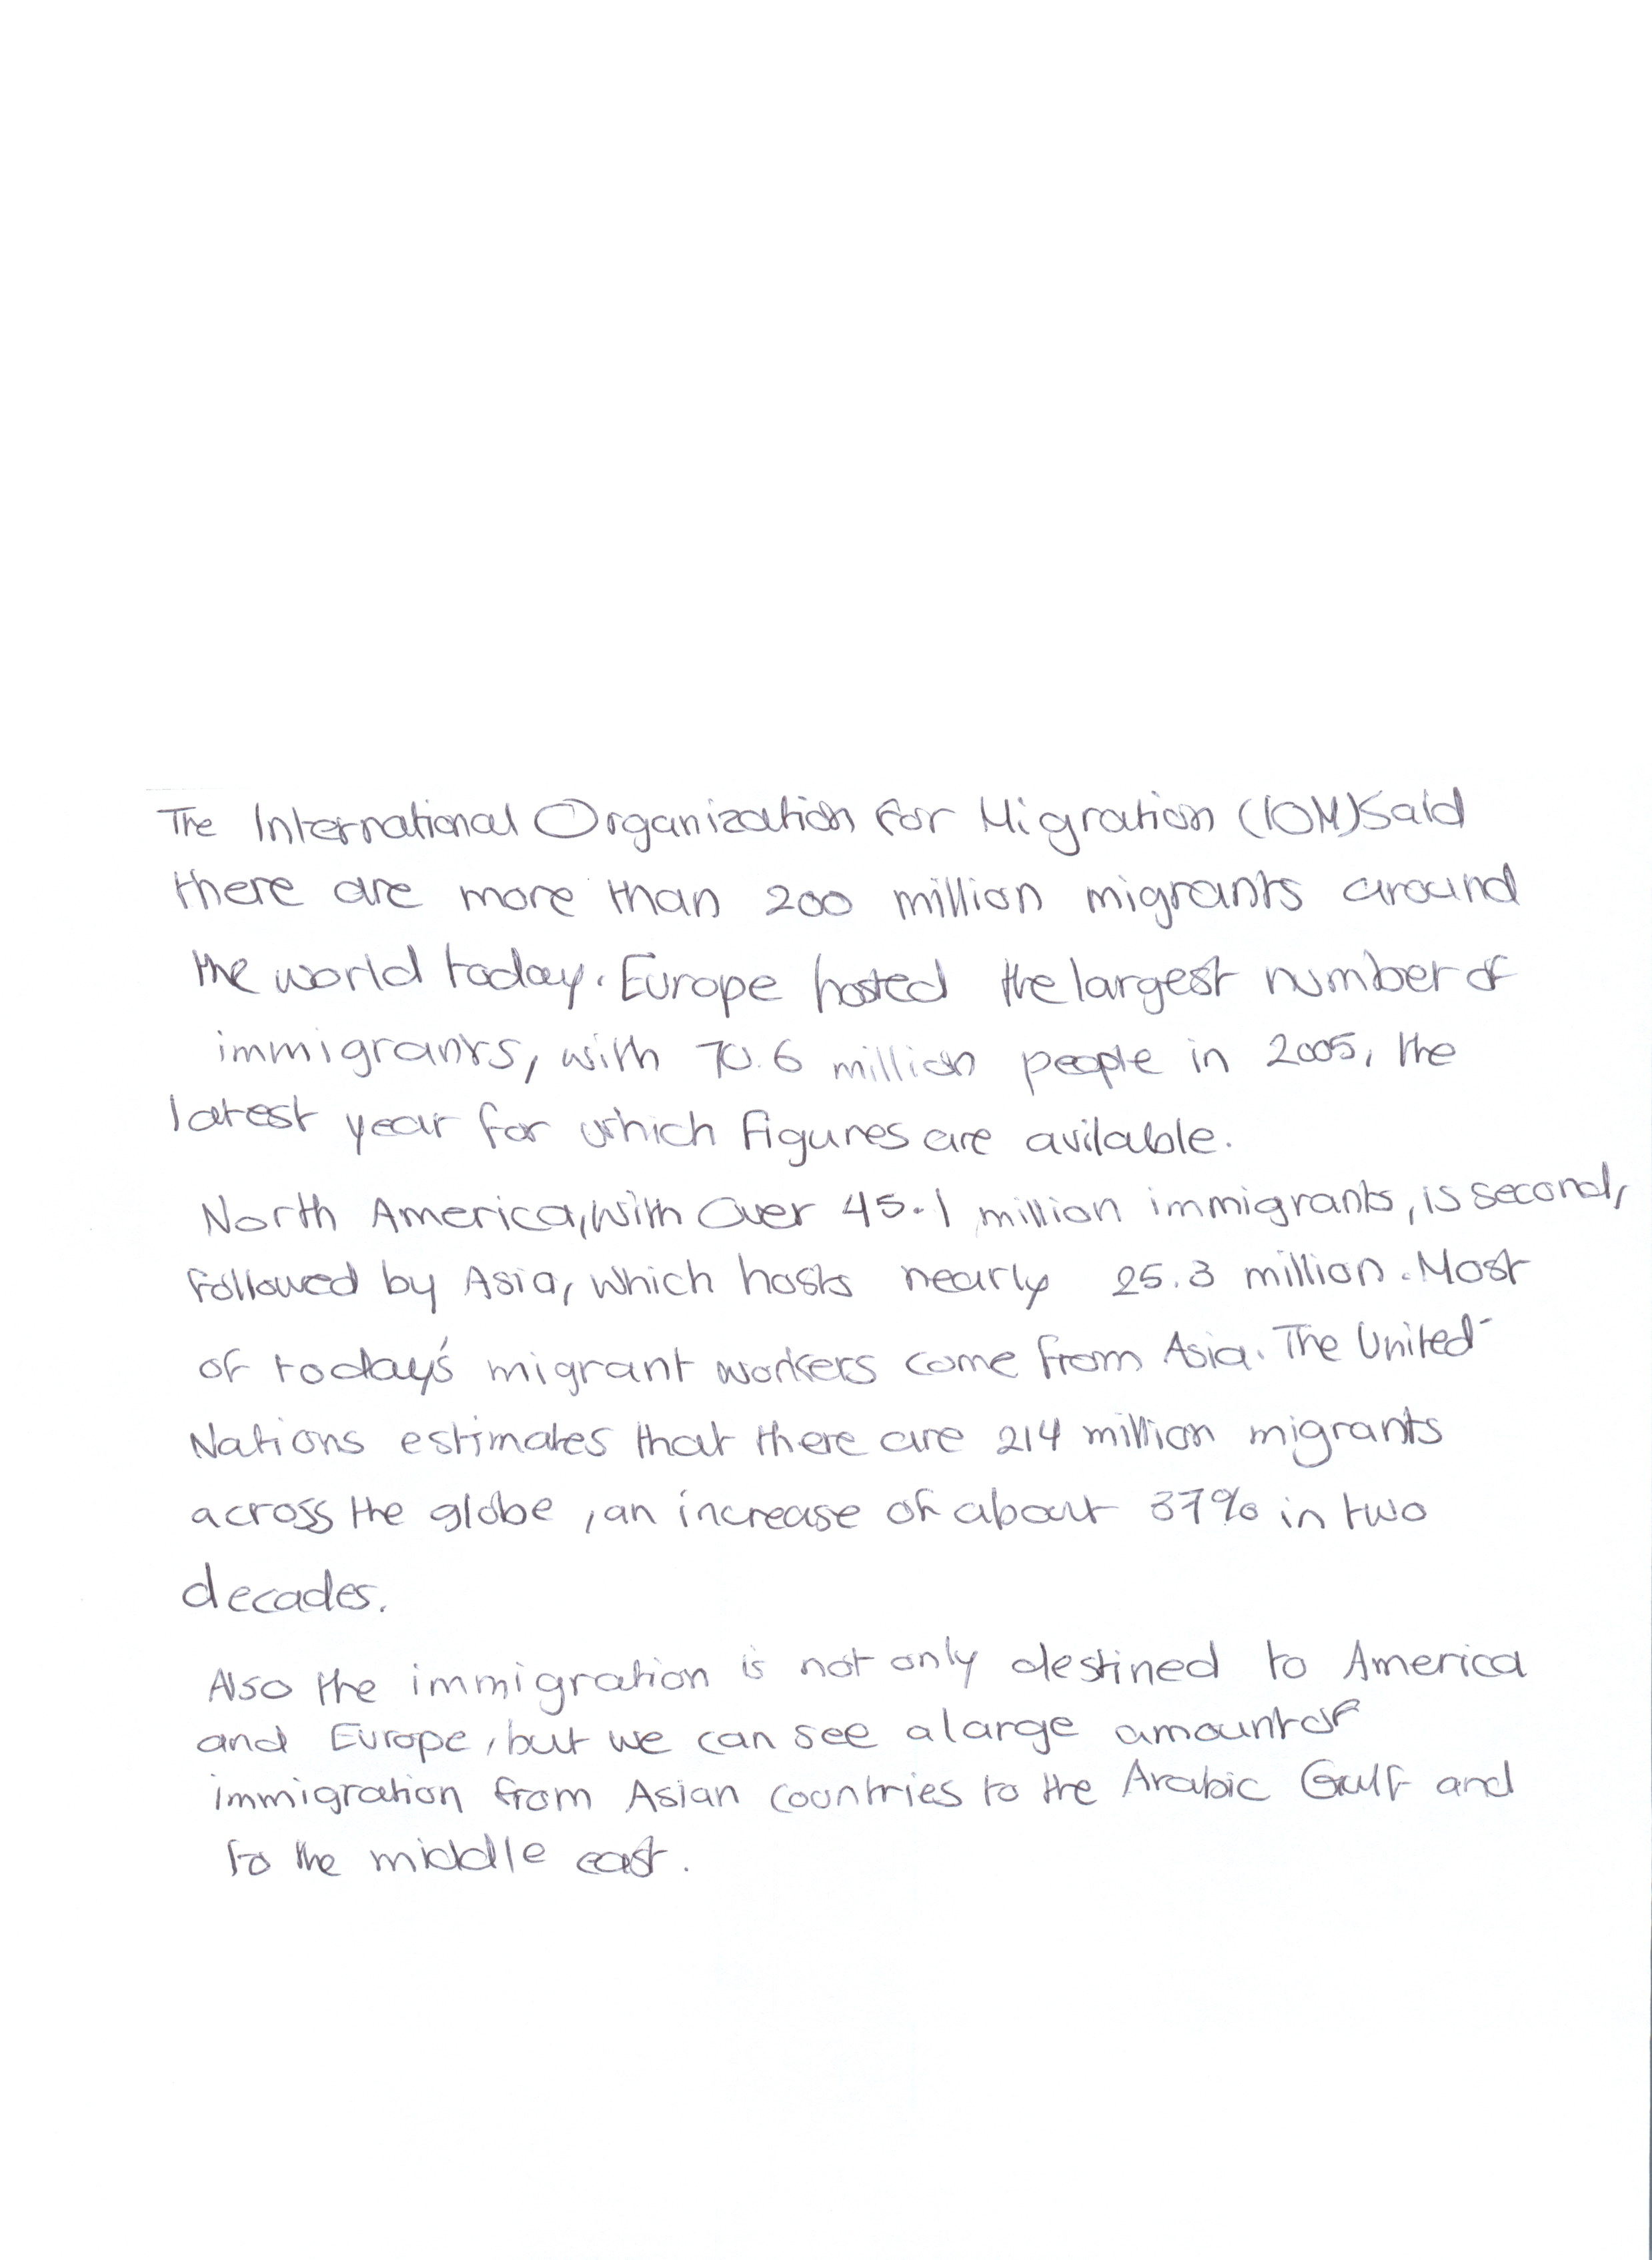 The International Organization for Migration (IOM) Said
there are more than 200 million migrants around
the world today. Europe hosted the largest number of
immigrants, with 70.6 million people in 2005, the
latest year for which figures are avilable.
North America, with over 45.1 million immigrants, is second,
followed by Asia, which hosts nearly 25.3 million. Most
of today's migrant workers come from Asia. The United
Nations estimates that there are 214 million migrants
across the globe, an increase of about 37% in two
decades.
Also the immigration is not only destined to America
and Europe, but we can see a large amount of
immigration from Asian countries to the Arabic Gulf and
to the middle east.